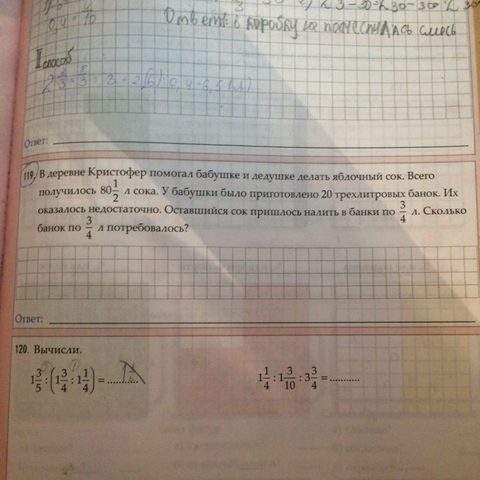 Ответ: в коробку не поместилась смесь
II способ
Ответ:
119. В деревне Кристофер помогал бабушке и дедушке делать яблочный сок. Всего
получилось 80 1/2 л сока. У бабушки было приготовлено 20 трехлитровых банок. Их
оказалось недостаточно. Оставшийся сок пришлось налить в банки по 3/4 л. Сколько
банок по 3/4 л потребовалось?
Ответ:
120. Вычисли.
1 3/5 : (1 3/4 : 1 1/4) = ..........
1 1/4 : 1 3/10 : 3 3/4 = ...........